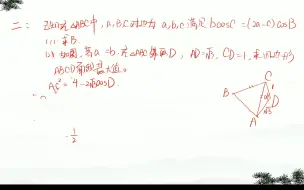 二: 已知在△ABC中, A,B,C对边为 a,b,c 满足 bcosC = (2a-c)cosB
(1) 求B.
(2) 如图, 若a=b 在△ABC 外取D, AD=√3, CD=1, 求四边形
ABCD 面积最大值.
AC² = 4-2√3cosD.
-1/2
B
C
A
D
1
√3